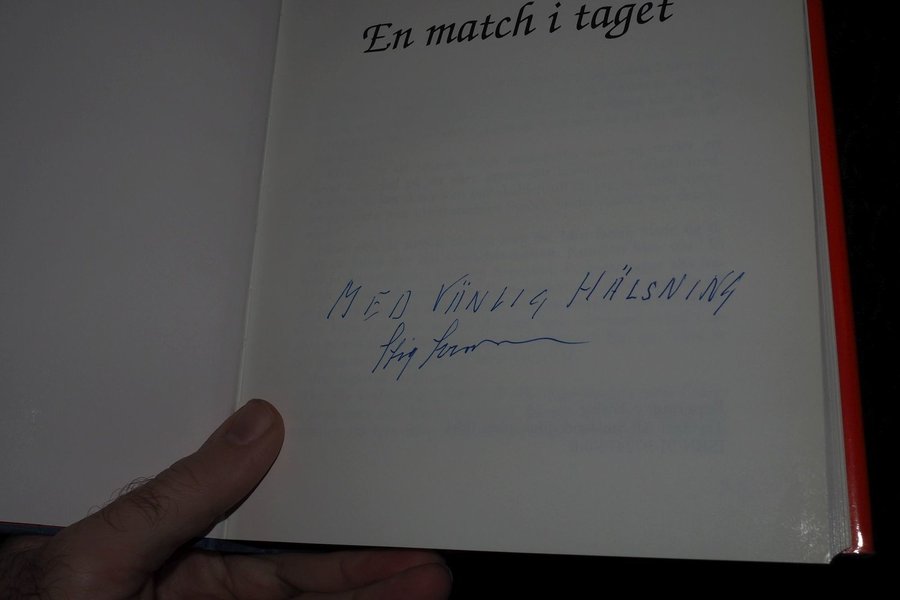 En match i taget
MED VÄNLIG HÄLSNING
Stig